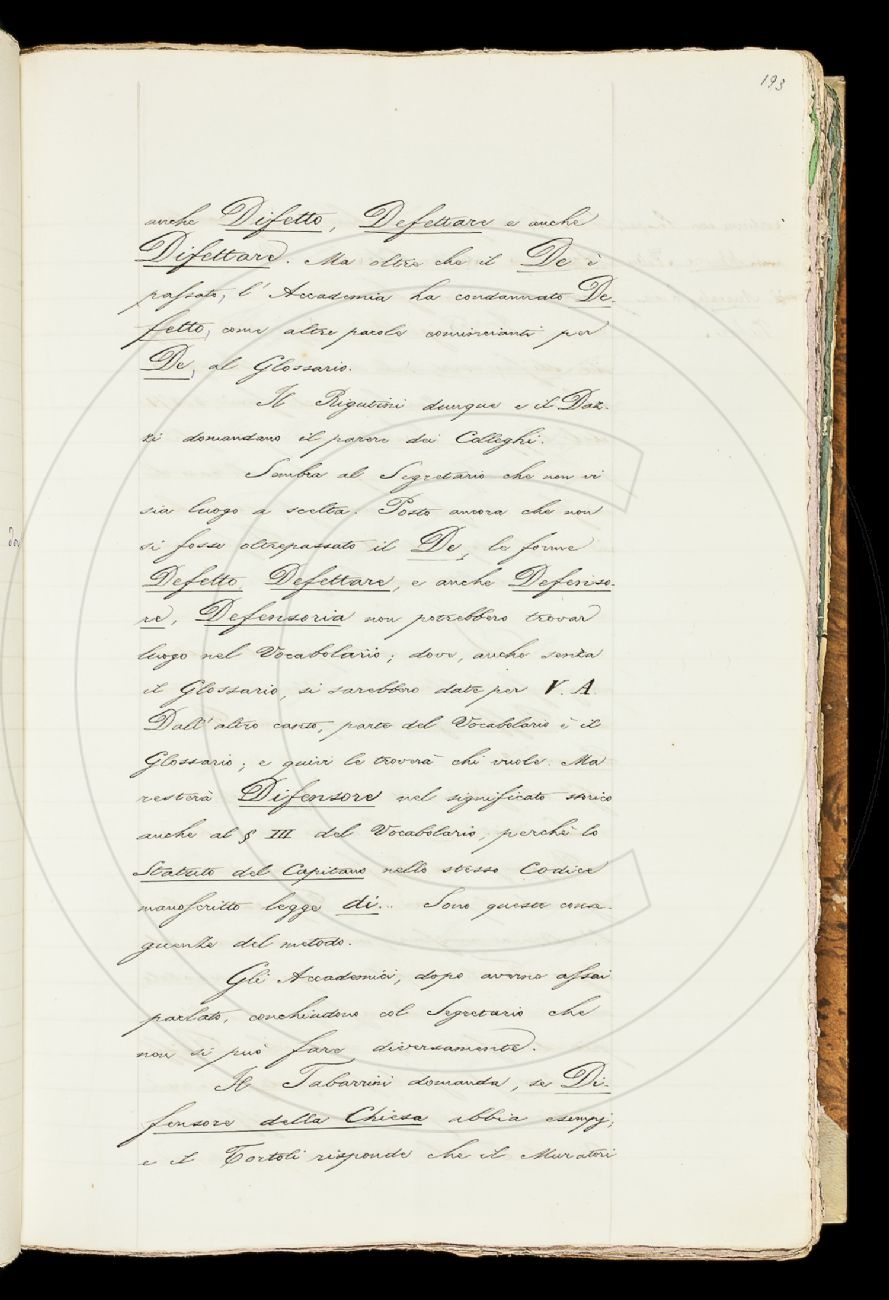 193
anche Difetto, Defettare e anche
Difettare. Ma oltre che il De è
passato, l'Accademia ha condannato De-
fetto, come altre parole comincianti per
De, al Glossario.
Il Rigutini dunque e il Daz-
zi domandano il parere dei Colleghi.
Sembra al Segretario che non vi
sia luogo a scelta. Posto ancora che non
si fosse oltrepassato il De, le forme
Defetto, Defettare, e anche Defenso-
re, Defensoria non potrebbero trovar
luogo nel Vocabolario; dove, anche senza
il Glossario, si sarebbero date per V. A.
Dall'altro canto, parte del Vocabolario è il
Glossario; e quivi le troverà chi vuole. Ma
resterà Difensore nel significato storico
anche al § III del Vocabolario, perchè lo
Statuto del Capitano nello stesso Codice
manoscritto legge di... Sono queste conse-
guenze del metodo.
Gli Accademici, dopo averne assai
parlato, conchiudono col Segretario che
non si può fare diversamente.
Il Tabarrini domanda, se Di-
fensore della Chiesa abbia esempj;
e il Tortoli risponde che il Muratori